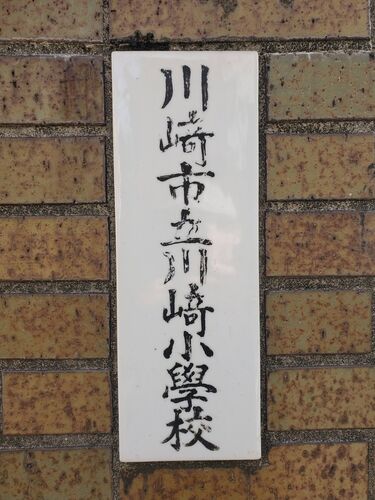 川崎市立川崎小學校